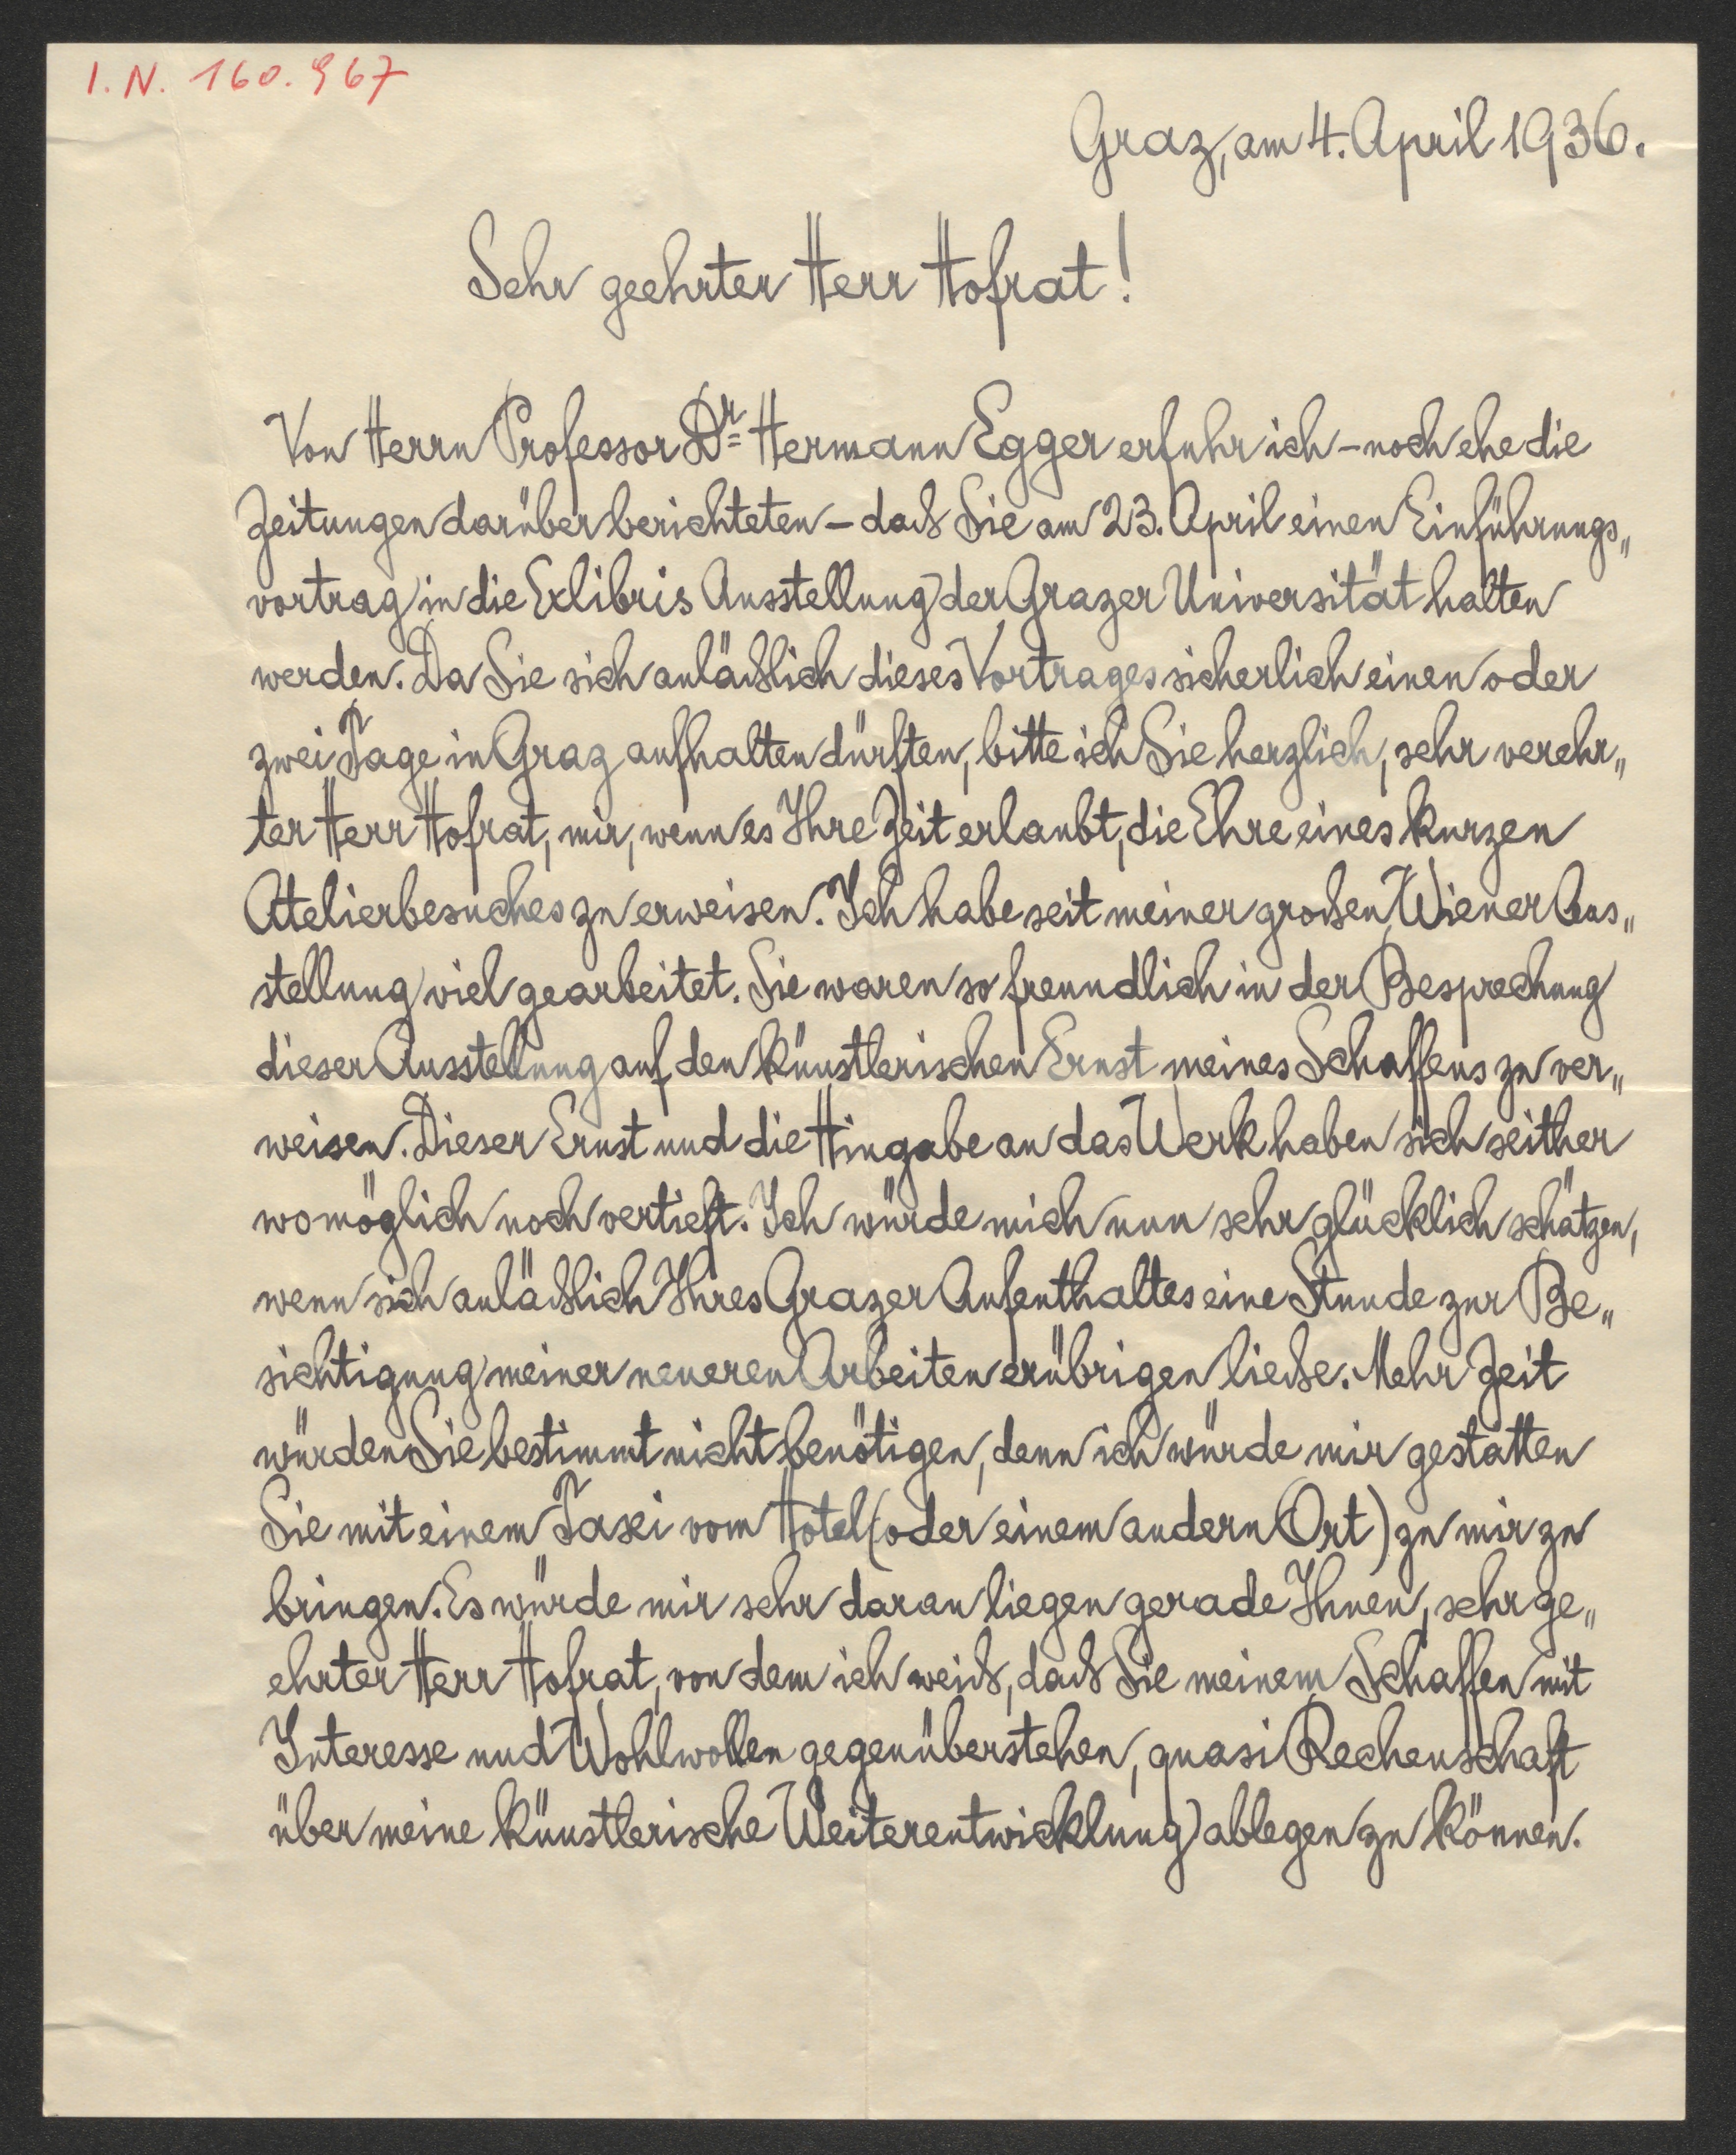 I.N. 160.967
Graz, am 4. April 1936.
Sehr geehrter Herr Hofrat!
Von Herrn Professor Dr. Hermann Egger erfuhr ich – noch ehe die
Zeitungen darüber berichteten – daß Sie am 23. April einen Einführungs„
vortrag in die Exlibris Ausstellung der Grazer Universität halten
werden. Da Sie sich anläßlich dieses Vortrages sicherlich einen oder
zwei Tage in Graz aufhalten dürften, bitte ich Sie herzlich, sehr verehr„
ter Herr Hofrat, mir, wenn es Ihre Zeit erlaubt, die Ehre eines kurzen
Atelierbesuches zu erweisen. Ich habe seit meiner großen Wiener Aus„
stellung viel gearbeitet. Sie waren so freundlich in der Besprechung
dieser Ausstellung auf den künstlerischen Ernst meines Schaffens zu ver„
weisen. Dieser Ernst und die Hingabe an das Werk haben sich seither
womöglich noch vertieft. Ich würde mich nun sehr glücklich schätzen,
wenn sich anläßlich Ihres Grazer Aufenthaltes eine Stunde zur Be„
sichtigung meiner neueren Arbeiten erübrigen ließe. Mehr Zeit
würden Sie bestimmt nicht benötigen, denn ich würde mir gestatten
Sie mit einem Taxi vom Hotel (oder einem andern Ort) zu mir zu
bringen. Es würde mir sehr daran liegen gerade Ihnen, sehr ge„
ehrter Herr Hofrat, von dem ich weiß, daß Sie meinem Schaffen mit
Interesse und Wohlwollen gegenüberstehen, quasi Rechenschaft
über meine künstlerische Weiterentwicklung ablegen zu können.